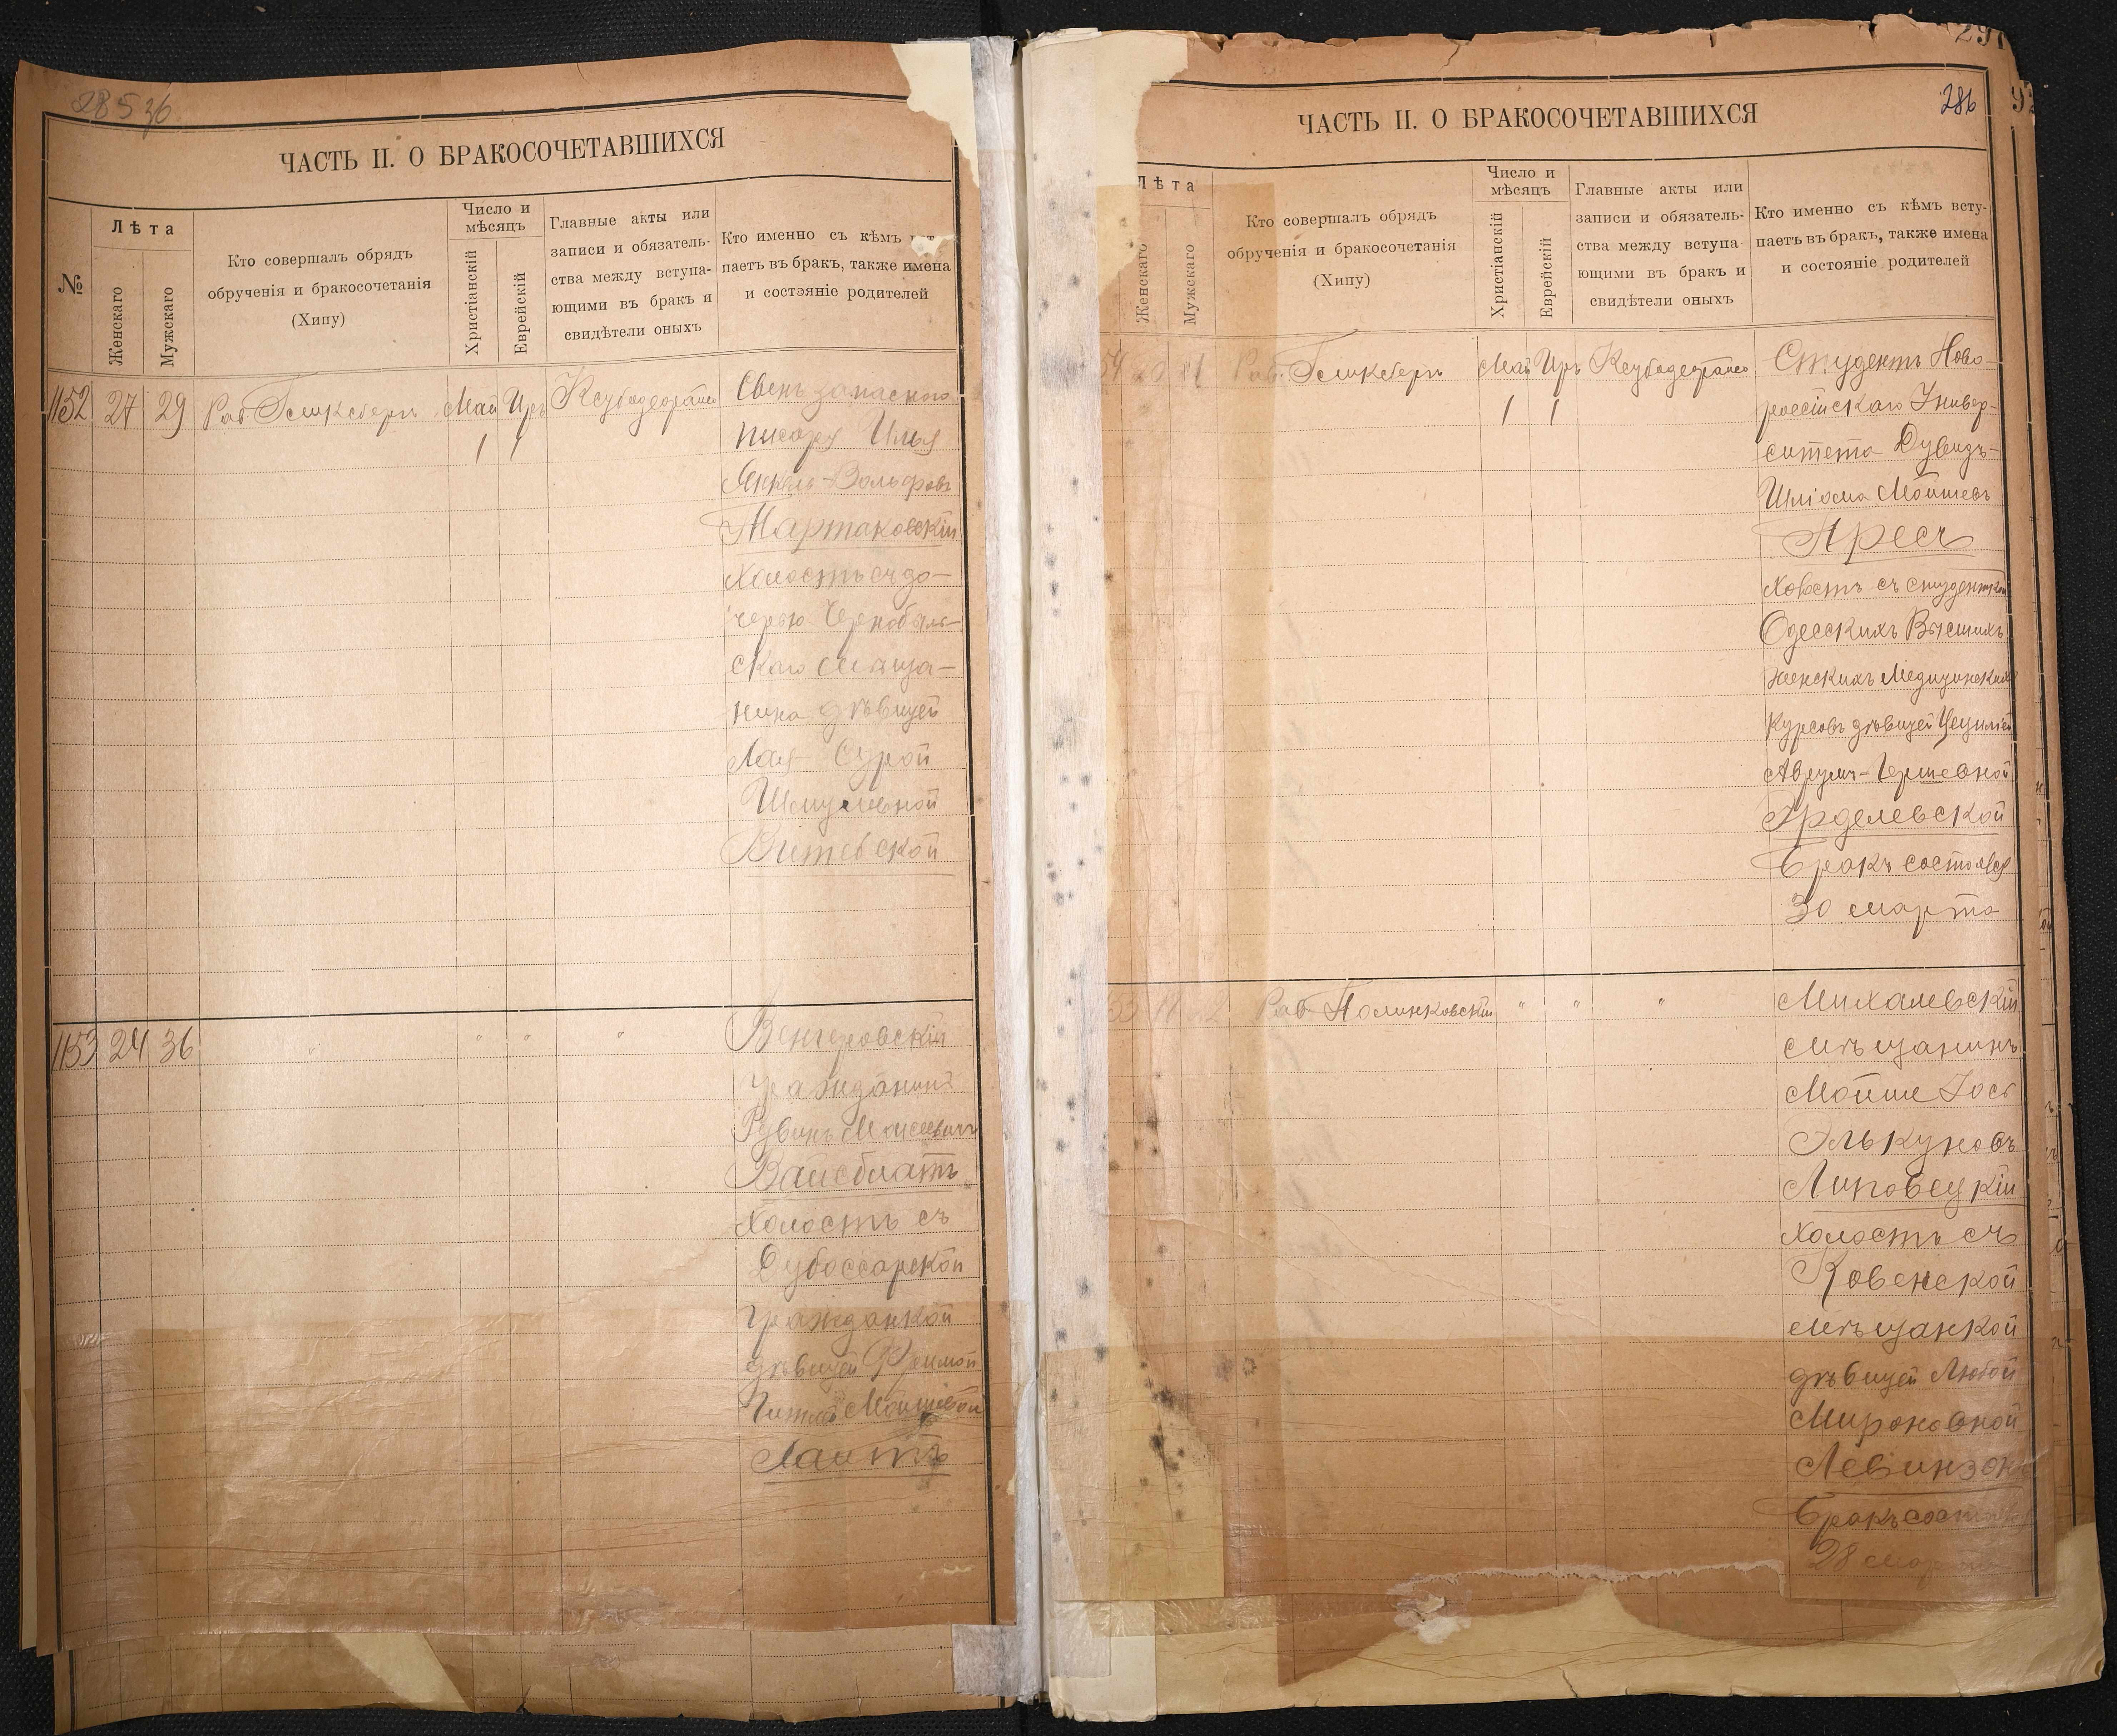 28536
ЧАСТЬ II. О БРАКОСОЧЕТАВШИХСЯ
№
Лѣта
Женскаго
Мужскаго
Кто совершалъ обрядъ
обрученія и бракосочетанія
(Хипу)
Число и
мѣсяцъ
Христіанскій
Еврейскій
Главные акты или
записи и обязатель-
ства между вступа-
ющими въ бракъ и
свидѣтели оныхъ
Кто именно съ кѣмъ
паетъ въ бракъ, также имена
и состояніе родителей
1152 27 29 Раб. Май Иръ
1 1
запаснаго
писаря Илья
Янкель-Вольфовъ
Мартаковскій
Холостъ съ до-
черью Чернобыль-
скаго мѣща-
нина дѣвицей
Лая Сурой
Шмулевной
1153 24 36 " " " "
Венгеровскій
гражданинъ
Рувинъ Моисеевичъ
Вайсблатъ
Холостъ съ
Дубоссарской
гражданкой
дѣвицей
ЧАСТЬ II. О БРАКОСОЧЕТАВШИХСЯ
286
Лѣта
Женскаго
Мужескаго
Кто совершалъ обрядъ
обрученія и бракосочетанія
(Хипу)
Число и
мѣсяцъ
Христіанскій
Еврейскій
Главные акты или
записи и обязатель-
ства между вступа
ющими въ бракъ и
свидѣтели оныхъ
Кто именно съ кѣмъ всту-
паетъ въ бракъ, также имена
и состояніе родителей
54 Раб. Май Иръ
1 1
Студентъ Ново-
россійскаго Универ-
ситета Дувидъ-
Шліома Мойшевъ
Аресъ
съ студенткой
Одесскихъ Высшихъ
Женскихъ Медицинскихъ
Курсовъ дѣвицей Цециліей
Аврумъ-Гершевной
Эрделевской
Бракъ состоялся
30 марта
Раб Полинковскій " " "
Михалевскій
мѣщанинъ
Мойше Іосъ
Элькуновъ
Липовецкій
Холостъ съ
Ковенской
мѣщанкой
дѣвицей Любой
Мироновной
Левинзонъ
Бракъ
28